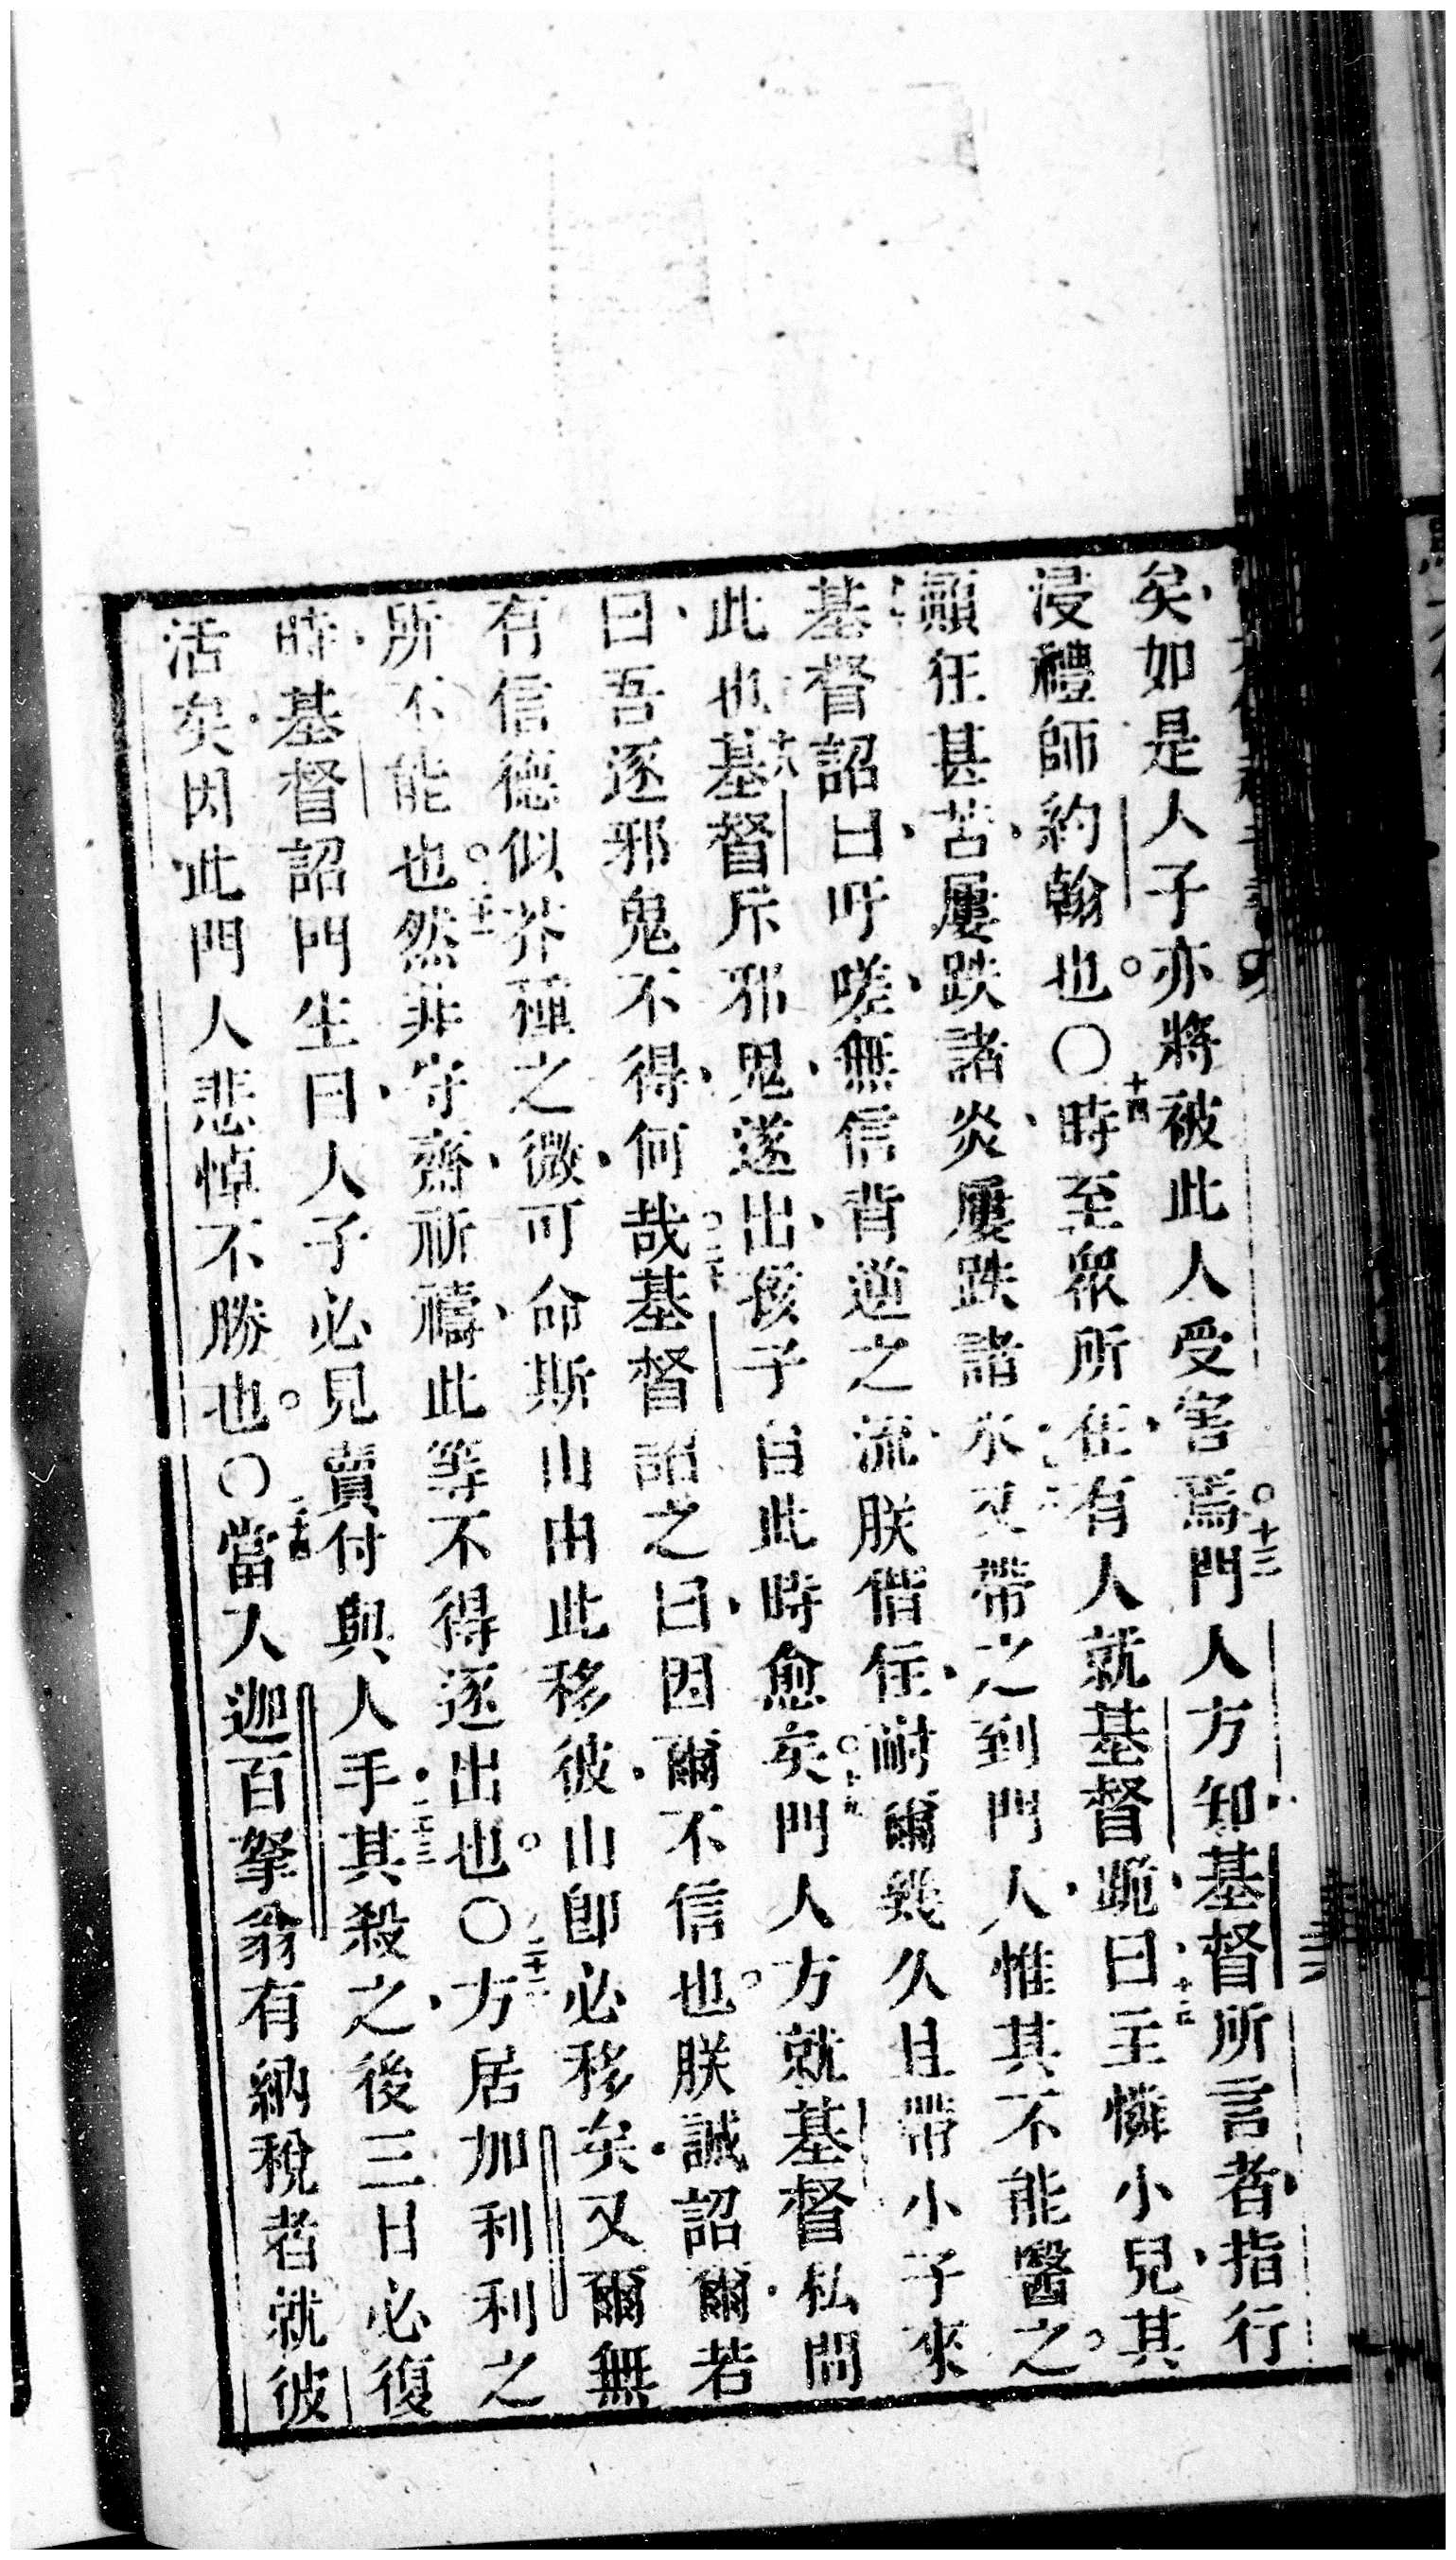 矣、如是人子亦將被此人受害焉。十三門人方知、基督所言者、指行
浸禮師約翰也。〇十四時至眾所在、有人就基督、跪曰、十五主憐小兒、其
顛狂甚苦、屢跌諸炎、屢跌諸水、又帶之到門人、惟其不能醫之。
基督詔曰、吁嗟、無信背逆之流、朕偕住、耐爾幾久、且帶小子來
此也。十八基督斥邪鬼、鬼遂出、孩子自此時愈矣。十九門人方就基督私問
曰、吾逐邪鬼不得、何哉。二十基督詔之曰、因爾不信也。朕誠詔爾、若
有信德似芥種之微、可命斯山由此移彼、山即必移矣、又爾無
所不能也。二十一然非守齋、祈禱、此等不得逐出也。〇二十二方居加利利之
時、基督詔門生曰、人子必見賣付與人手、二十三其殺之、後三日必復
活矣、因此門人悲悼不勝也。〇二十四當入迦百拏翁、有納稅者就彼